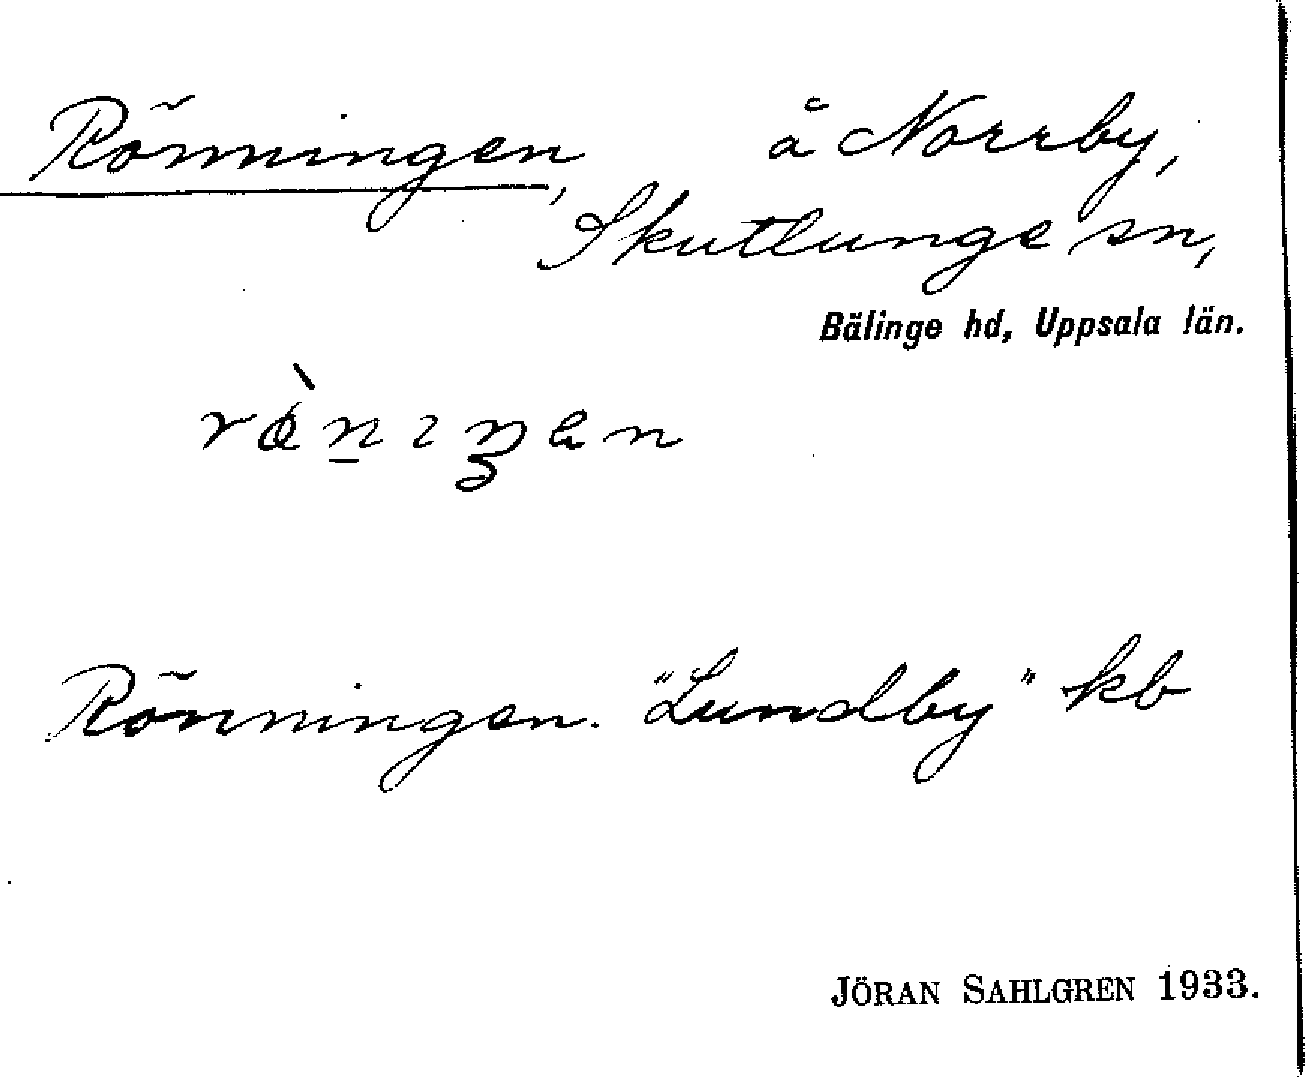 Rönningen, å Norrby,
Skuttunge sn,
Bälinge hd, Uppsala län.
Rönningen. "Lundby" kb
JÖRAN SAHLGREN 1933.